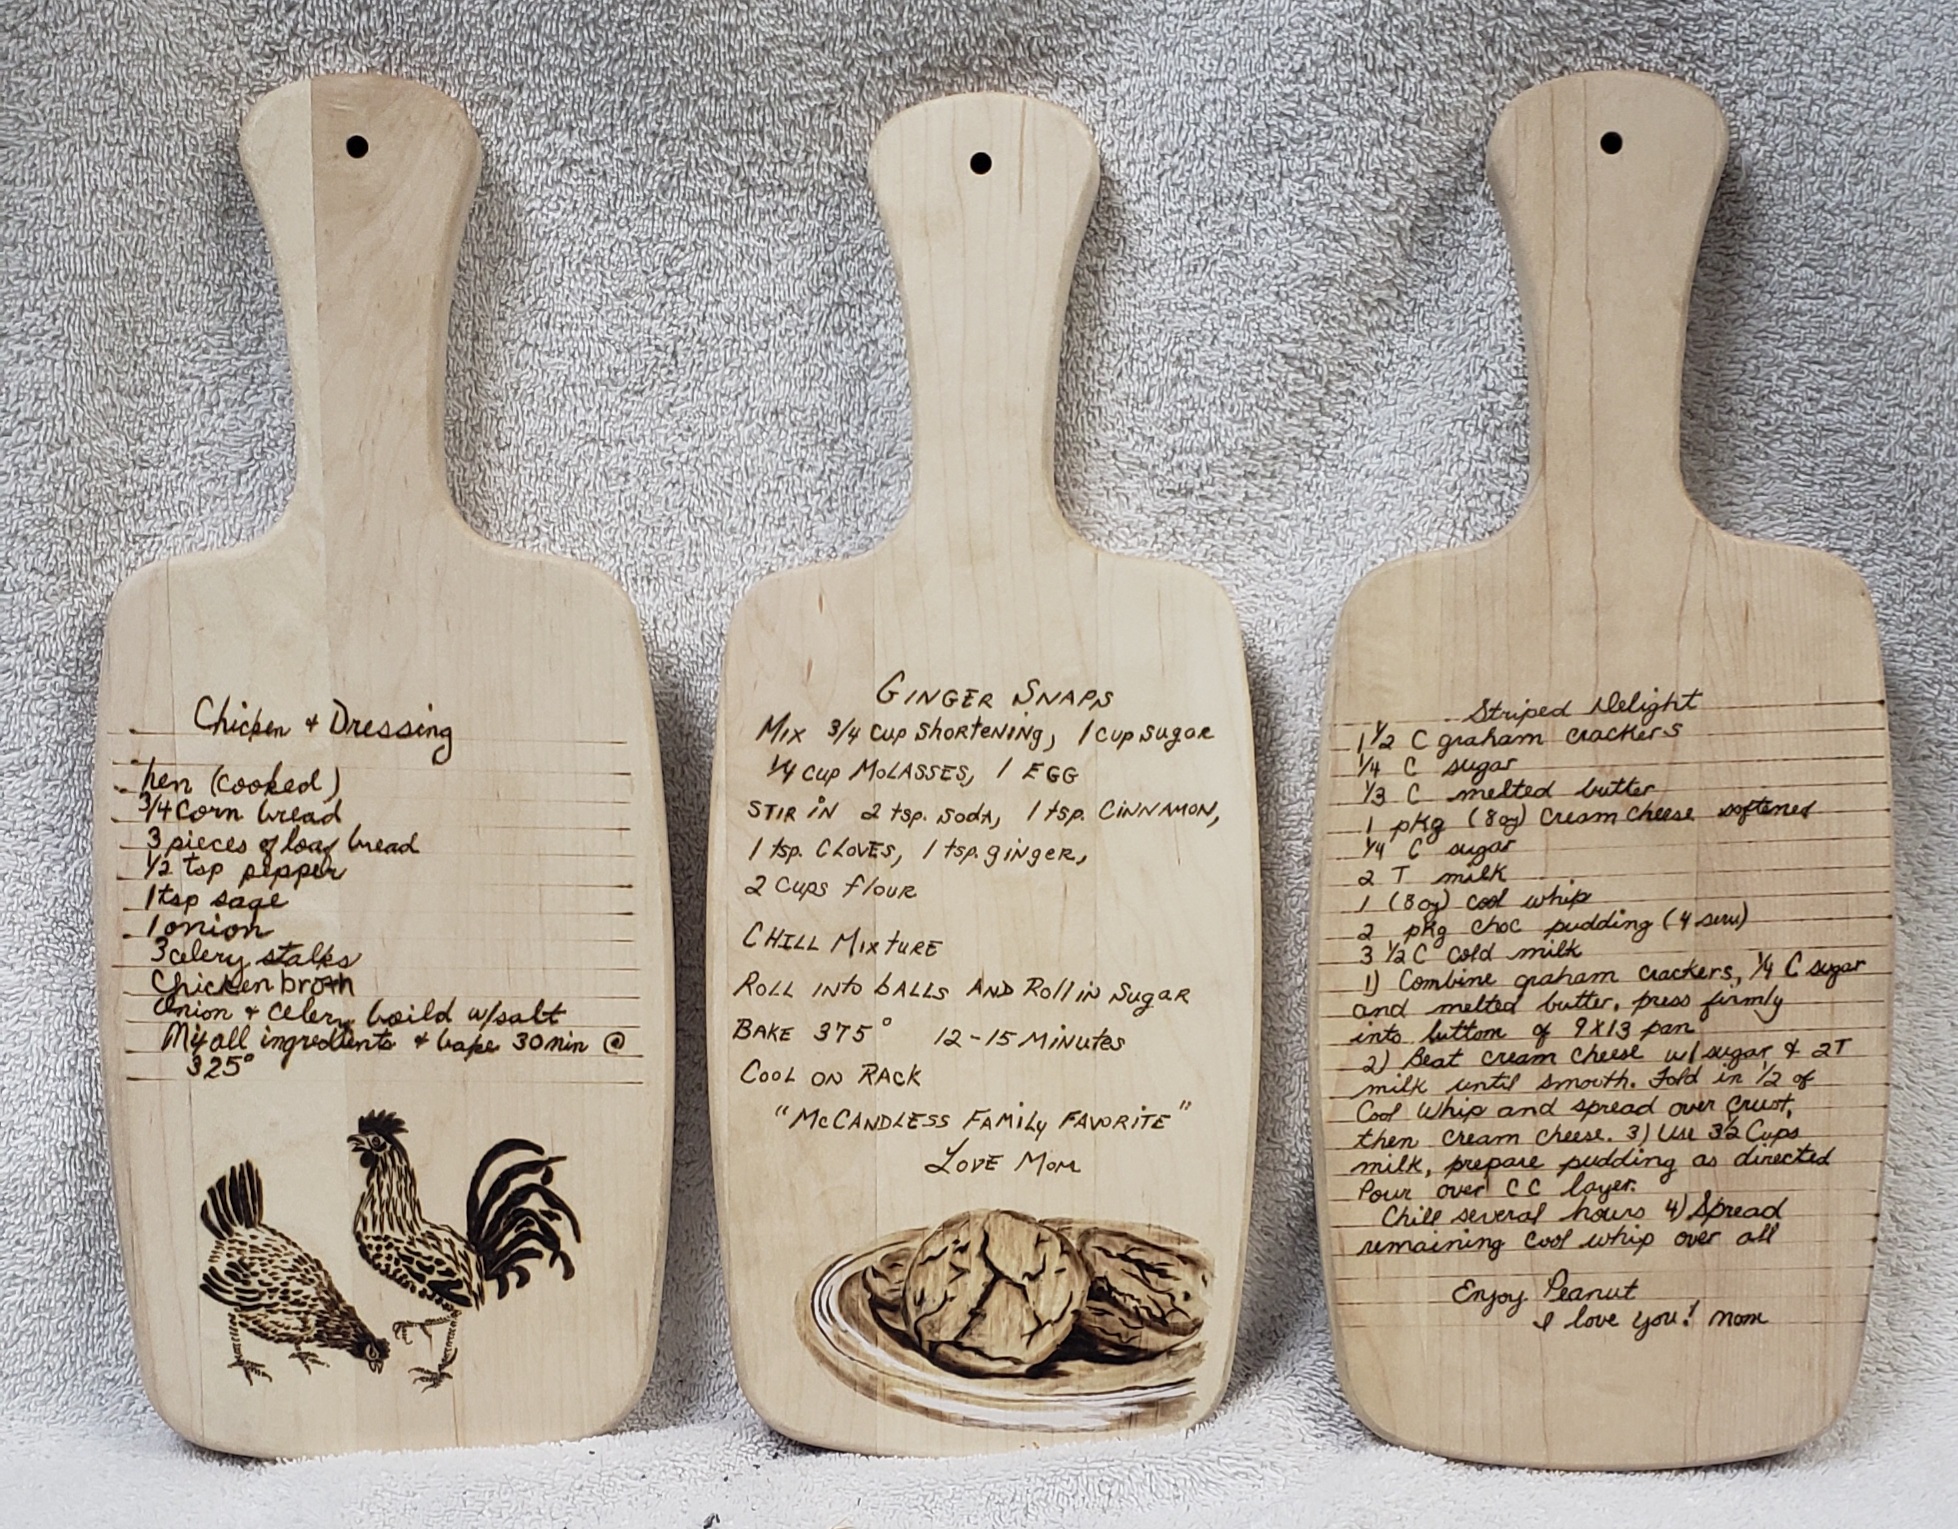 Chicken & Dressing
hen (cooked)
3/4 Corn bread
3 pieces of loaf bread
1/2 tsp pepper
1 tsp sage
1 onion
3 celery stalks
Chicken broth
Onion & Celery boild w/salt
Mix all ingredients & bake 30 min @
325°
GINGER SNAPS
Mix 3/4 cup shortening, 1 cup sugar
1/4 cup MOLASSES, 1 EGG
STIR IN 2 tsp. soda, 1 tsp. CINNAMON,
1 tsp. CLOVES, 1 tsp. ginger,
2 cups flour
CHILL MIXTURE
ROLL INTO bALLS AND Roll in Sugar
BAKE 375° 12-15 MINUTES
COOL ON RACK
"McCANDLESS FAMILY FAVORITE"
LOVE MOM
Striped Delight
1 1/2 C graham crackers
1/4 C sugar
1/3 C melted butter
1 pkg (8oz) cream cheese softened
1/4 C sugar
2 T milk
1 (8oz) cool whip
2 pkg choc pudding (4 serv)
3 1/2 C cold milk
1) Combine graham crackers, 1/4 C sugar
and melted butter, press firmly
into buttom of 9X13 pan
2) Beat cream cheese w/ sugar & 2T
milk until smooth. Fold in 1/2 of
Cool Whip and spread over crust,
then cream cheese. 3) Use 3 1/2 Cups
milk, prepare pudding as directed
Pour over CC layer.
Chill several hours 4) Spread
remaining cool whip over all
Enjoy Peanut
I love you! Mom